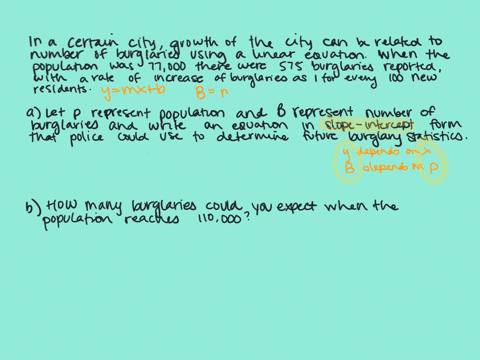 In a certain city, growth of the city can be related to
number of burglaries using a linear equation. When the
population was 77,000 there were 575 burglaries reported,
with a rate of increase of burglaries as 1 for every 100 new
residents. y=mx+b B=n
a) Let P represent population and B represent number of
burglaries and write an equation in slope-intercept form
that police could use to determine future burglary statistics.
y depends on x
B depends on P
b) How many burglaries could you expect when the
population reaches 110,000?